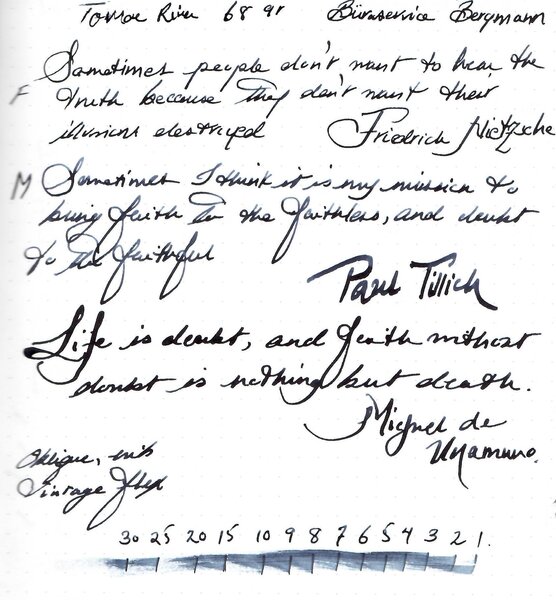 Tomoe River 68 gr Büroservice Bergmann
Sometimes people don't want to hear the
F truth because they don't want their
illusions destroyed Friedrich Nietzsche
M Sometimes I think it is my mission to
bring faith to the faithless, and doubt
to the faithful
Paul Tillich
Life is doubt, and faith without
doubt is nothing but death.
Miguel de
Unamuno.
Oblique, nib
Vintage Flex
30 25 20 15 10 9 8 7 6 5 4 3 2 1.